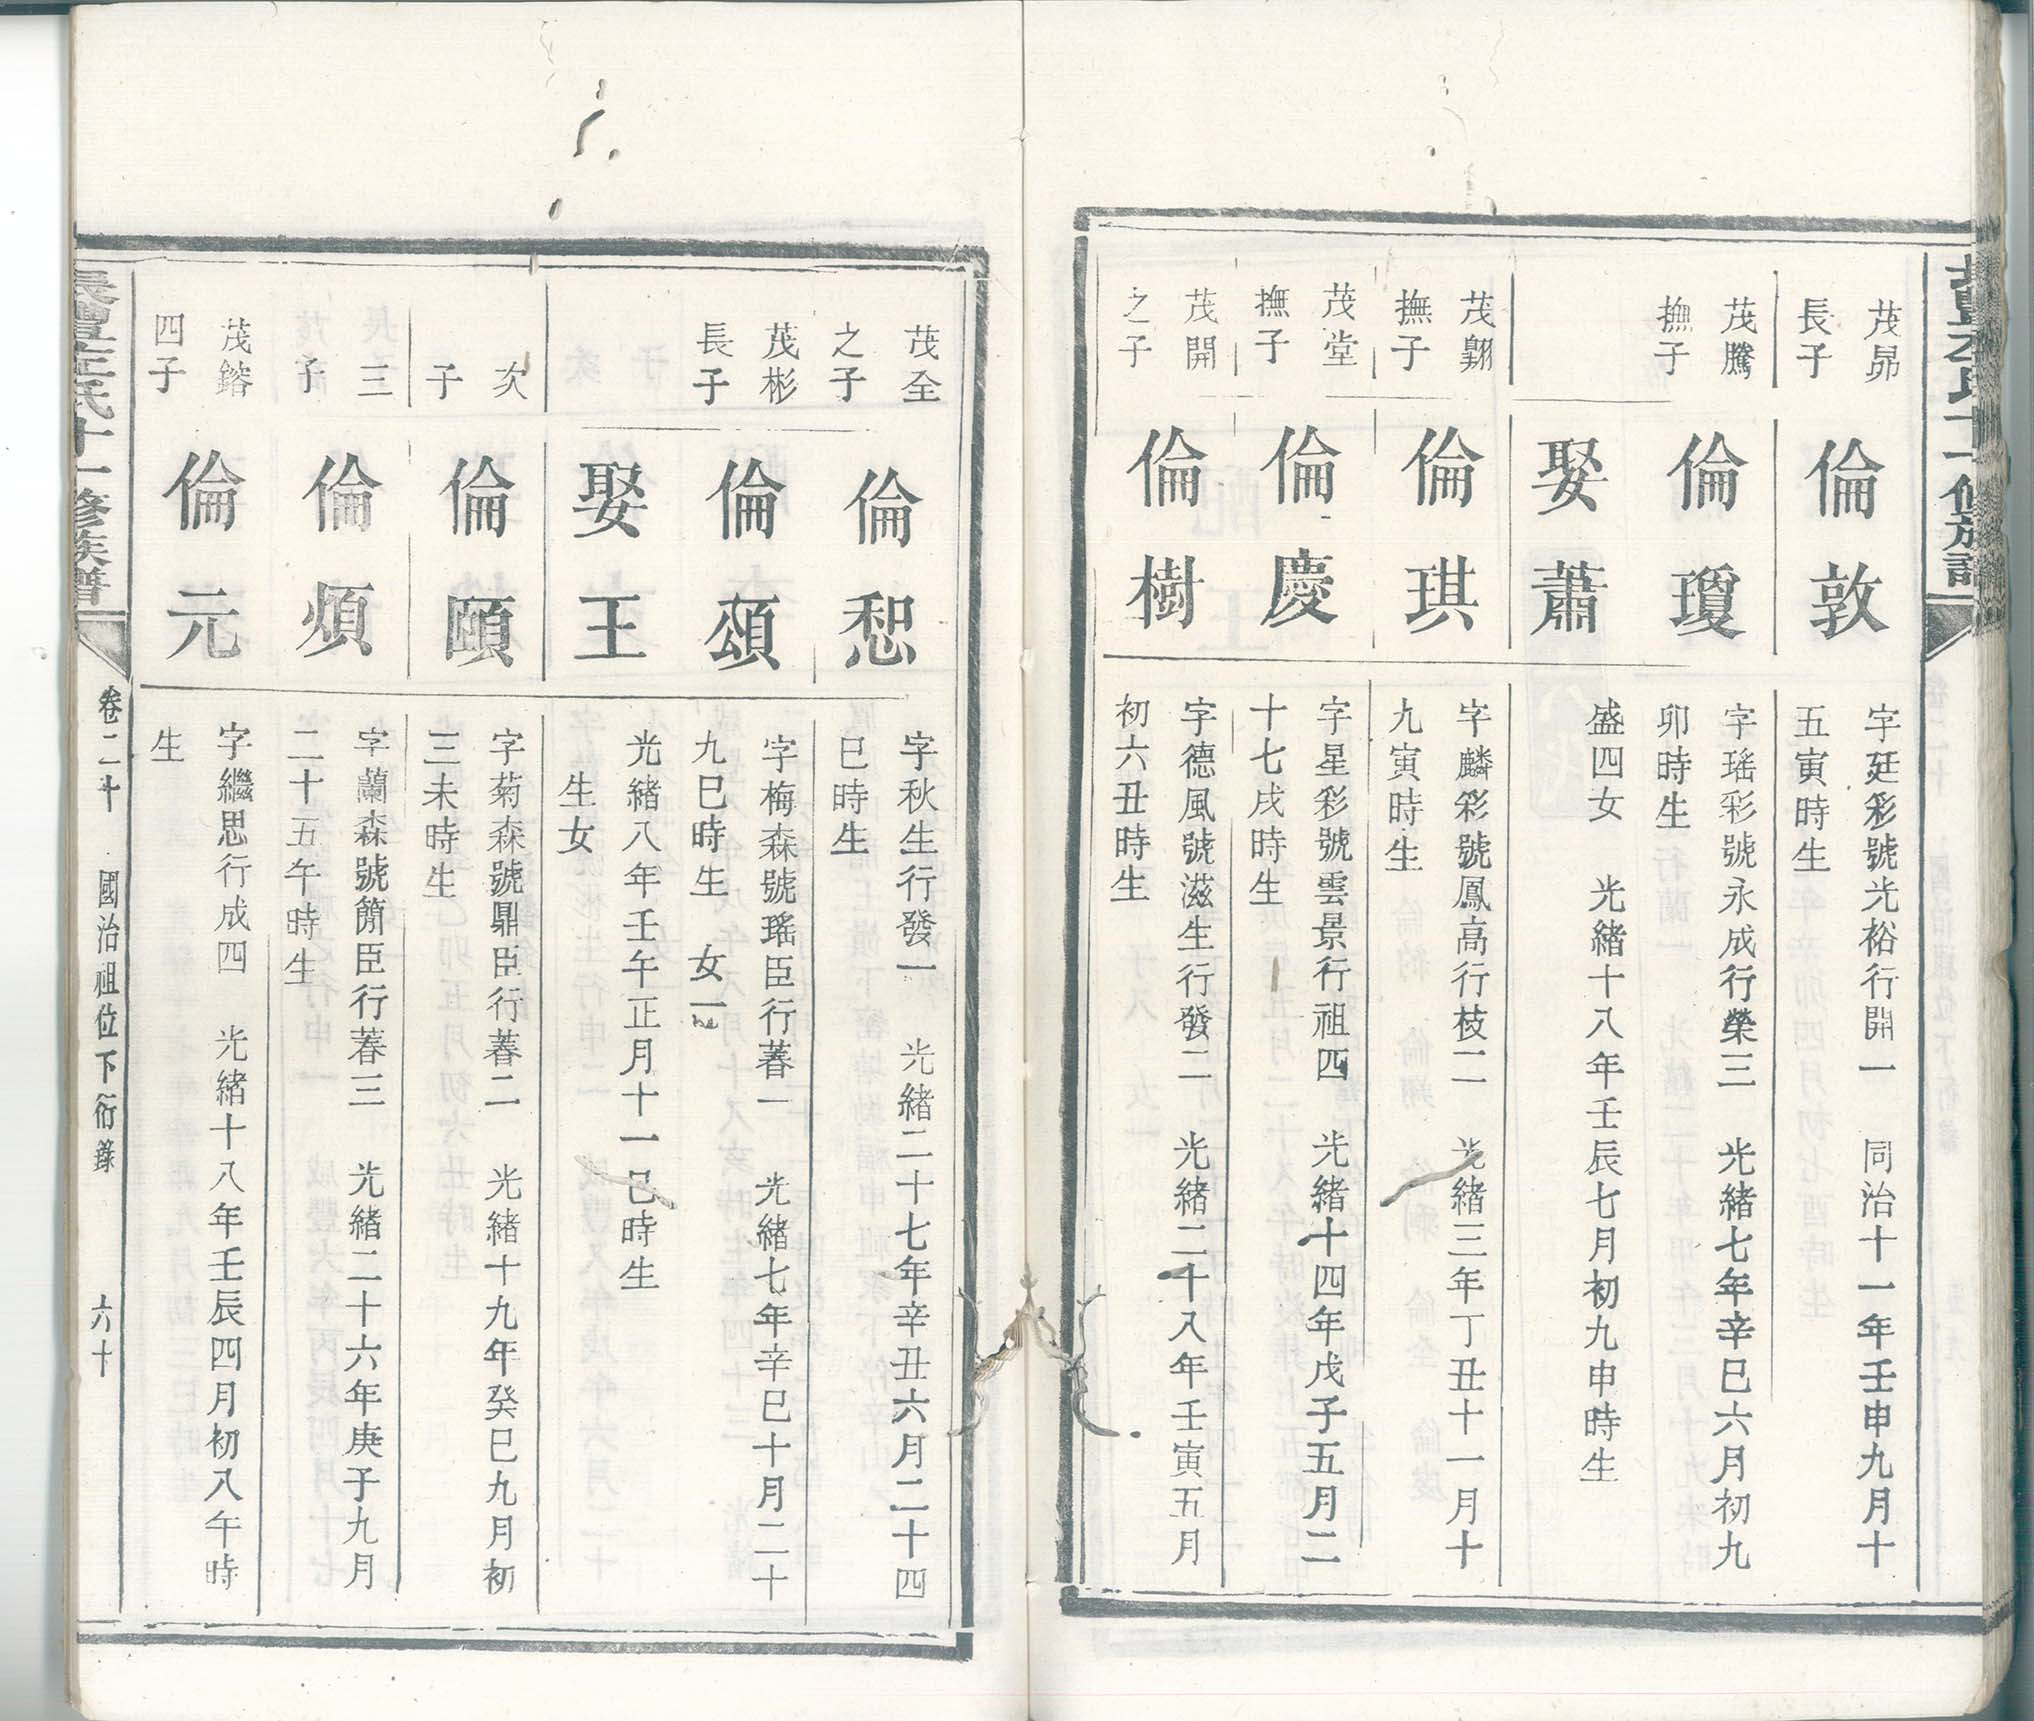 茂昴
長子
倫敦
字廷彩號光裕行開一 同治十一年壬申九月十
五寅時生
茂騰
撫子
倫瓊
字瑤彩號永成行榮三 光緒七年辛巳六月初九
卯時生
娶蕭
盛四女 光緒十八年壬辰七月初九申時生
茂翱
撫子
倫琪
字麟彩號鳳高行枝二 光緒三年丁丑十一月十
九寅時生
茂堂
撫子
倫慶
字星彩號雲景行祖四 光緒十四年戊子五月二
十七戌時生
茂開
之子
倫樹
字德風號滋生行發二 光緒二十八年壬寅五月
初六丑時生
茂全
之子
倫恕
字秋生行發一 光緒二十七年辛丑六月二十四
巳時生
茂彬
長子
倫頌
字梅森號瑤臣行萶一 光緒七年辛巳十月二十
九巳時生 女一
娶王
光緒八年壬午正月十一巳時生
生女
次
子
倫頤
字菊森號鼎臣行萶二 光緒十九年癸巳九月初
三未時生
三
子
倫煩
字蘭森號簡臣行萶三 光緒二十六年庚子九月
二十五午時生
茂鎔
四子
倫元
字繼思行成四 光緒十八年壬辰四月初八午時
生
氏十一修族譜
卷二十 國治祖位下衍錄 六十